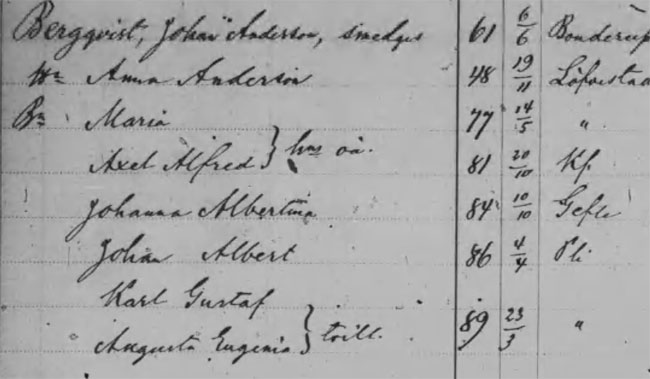 Bergqvist, Johan Anderson, smedges 61 6/6 Bonderup
Hu Anna Anderson 48 19/11 Löfvestad
Bn Maria 77 14/5 "
Axel Alfred } hus oä. 81 20/10 Kf.
Johanna Albertina 84 10/10 Gefle
Johan Albert 86 4/4 Pli
Karl Gustaf
Augusta Eugenia } tvill. 89 23/3 "